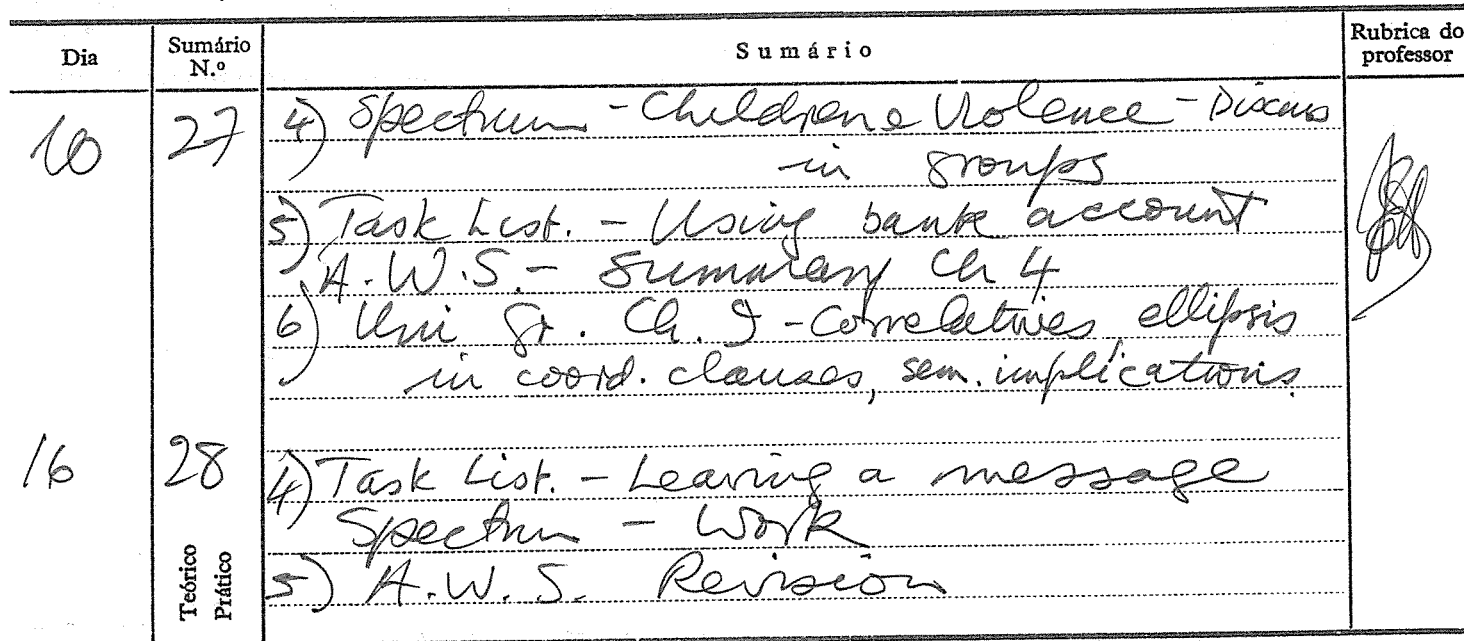 Dia Sumário N.º Sumário Rubrica do professor
10 27 4) Spectrum - Children e Violence - Discuss
in groups
5) Task List. - Using bank account
A.W.S. - Summary Ch 4
6) Uni Gr. Ch. 9 - Correlatives, ellipsis
in coord. clauses, sem. implications.
16 28 4) Task List. - Leaving a message
Spectrum - Work
5) A.W.S. Revision
Teórico
Prático